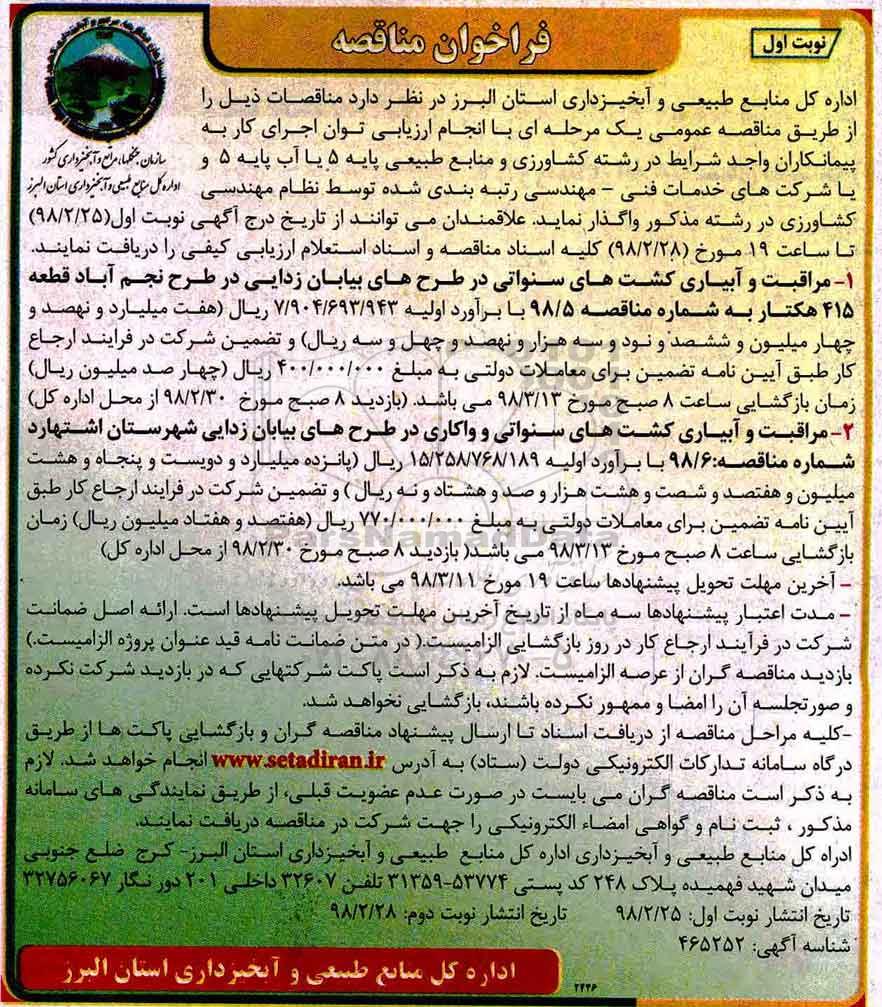 نوبت اول
فراخوان مناقصه
سازمان جنگلها، مراتع و آبخیزداری کشور
اداره کل منابع طبیعی و آبخیزداری استان البرز
اداره کل منابع طبیعی و آبخیزداری استان البرز در نظر دارد مناقصات ذیل را
از طریق مناقصه عمومی یک مرحله ای با انجام ارزیابی توان اجرای کار به
پیمانکاران واجد شرایط در رشته کشاورزی و منابع طبیعی پایه ۵ یا آب پایه ۵ و
یا شرکت های خدمات فنی - مهندسی رتبه بندی شده توسط نظام مهندسی
کشاورزی در رشته مذکور واگذار نماید. علاقمندان می توانند از تاریخ درج آگهی نوبت اول(۹۸/۲/۲۵)
تا ساعت ۱۹ مورخ (۹۸/۲/۲۸) کلیه اسناد مناقصه و اسناد استعلام ارزیابی کیفی را دریافت نمایند.
۱- مراقبت و آبیاری کشت های سنواتی در طرح های بیابان زدایی در طرح نجم آباد قطعه
۴۱۵ هکتار به شماره مناقصه ۹۸/۵ با برآورد اولیه ۷/۹۰۴/۶۹۳/۹۴۳ ریال (هفت میلیارد و نهصد و
چهار میلیون و ششصد و نود و سه هزار و نهصد و چهل و سه ریال) و تضمین شرکت در فرایند ارجاع
کار طبق آیین نامه تضمین برای معاملات دولتی به مبلغ ۴۰۰/۰۰۰/۰۰۰ ریال (چهار صد میلیون ریال)
زمان بازگشایی ساعت ۸ صبح مورخ ۹۸/۳/۱۳ می باشد. (بازدید ۸ صبح مورخ ۹۸/۲/۳۰ از محل اداره کل)
۲- مراقبت و آبیاری کشت های سنواتی و واکاری در طرح های بیابان زدایی شهرستان اشتهارد
شماره مناقصه:۹۸/۶ با برآورد اولیه ۱۵/۲۵۸/۷۶۸/۱۸۹ ریال (پانزده میلیارد و دویست و پنجاه و هشت
میلیون و هفتصد و شصت و هشت هزار و صد و هشتاد و نه ریال ) و تضمین شرکت در فرایند ارجاع کار طبق
آیین نامه تضمین برای معاملات دولتی به مبلغ ۷۷۰/۰۰۰/۰۰۰ ریال (هفتصد و هفتاد میلیون ریال) زمان
بازگشایی ساعت ۸ صبح مورخ ۹۸/۳/۱۳ می باشد( بازدید ۸ صبح مورخ ۹۸/۲/۳۰ از محل اداره کل)
- آخرین مهلت تحویل پیشنهادها ساعت ۱۹ مورخ ۹۸/۳/۱۱ می باشد.
- مدت اعتبار پیشنهادها سه ماه از تاریخ آخرین مهلت تحویل پیشنهادها است. ارائه اصل ضمانت
شرکت در فرآیند ارجاع کار در روز بازگشایی الزامیست.( در متن ضمانت نامه قید عنوان پروژه الزامیست.)
بازدید مناقصه گران از عرصه الزامیست. لازم به ذکر است پاکت شرکتهایی که در بازدید شرکت نکرده
و صورتجلسه آن را امضا و ممهور نکرده باشند، بازگشایی نخواهد شد.
-کلیه مراحل مناقصه از دریافت اسناد تا ارسال پیشنهاد مناقصه گران و بازگشایی پاکت ها از طریق
درگاه سامانه تدارکات الکترونیکی دولت (ستاد) به آدرس www.setadiran.ir انجام خواهد شد. لازم
به ذکر است مناقصه گران می بایست در صورت عدم عضویت قبلی، از طریق نمایندگی های سامانه
مذکور ، ثبت نام و گواهی امضاء الکترونیکی را جهت شرکت در مناقصه دریافت نمایند.
ادراه کل منابع طبیعی و آبخیزداری اداره کل منابع طبیعی و آبخیزداری استان البرز- کرج ضلع جنوبی
میدان شهید فهمیده پلاک ۲۴۸ کد پستی ۵۳۷۷۴-۳۱۳۵۹ تلفن ۳۲۶۰۷ داخلی ۲۰۱ دور نگار ۳۲۷۵۶۰۶۷
تاریخ انتشار نوبت اول: ۹۸/۲/۲۵ تاریخ انتشار نوبت دوم: ۹۸/۲/۲۸
شناسه آگهی: ۴۶۵۲۵۲
اداره کل منابع طبیعی و آبخیزداری استان البرز
۲۴۴۶
ParsNamadData